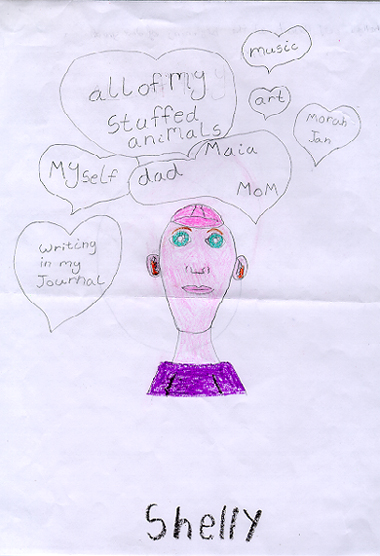 music
all of my
stuffed
animals
art
Morah
Jan
Maia
Myself
dad
MoM
writing
in my
Journal
Shelly